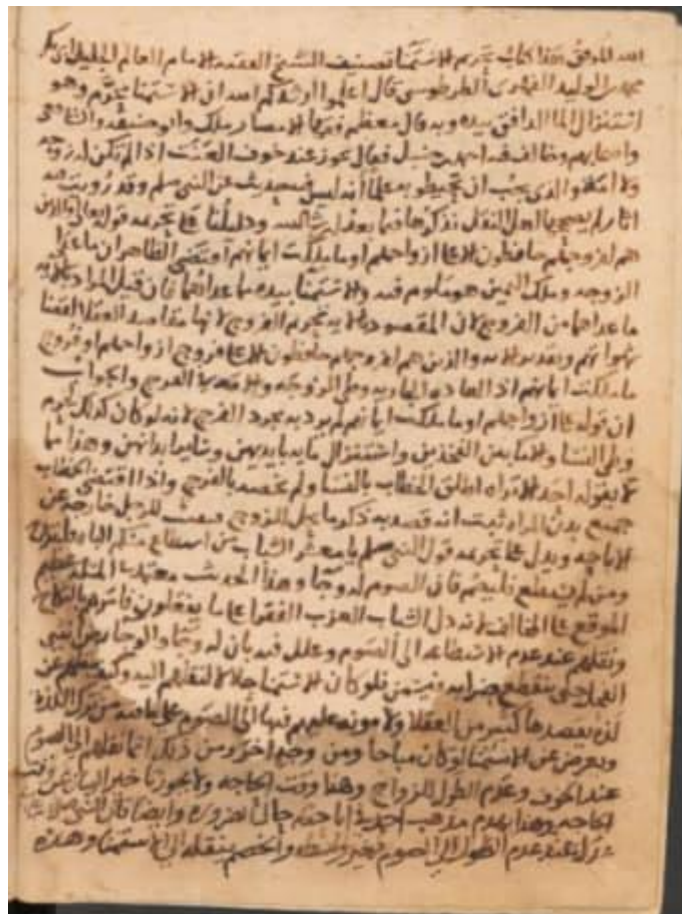 الله الموفق هذا كتاب تحريم الاستمنا تصنيف الشيخ الفقيه الامام العالم الجليل ابي بكر
محمد بن الوليد الفهري الطرطوسي قال اعلموا ارشدكم الله ان الاستمنا محرم وهو
استنزال الما الدافق بيده وبه قال معظم فقها الامصار ملك وابو حنيفه والشافعي
واصحابهم وخالف فيه احمد بن حنبل فقال يجوز عند خوف العنت اذا لم تكن له زوجه
ولا امه والذي يجب ان تحيطوا به علما انه ليس فيه حديث عن النبي سلم وقد رويت فيه
اثار لم يصححها اهل النقل نذكرها فيما بعد ان شا الله ودليلنا على تحريمه قوله تعالى والذين
هم لفروجهم حافظون الا على ازواجهم او ما ملكت ايمانهم اقتضى الظاهر ان ما عدا
الزوجه وملك اليمين هو ملوم فيه والاستمنا بيده مما عداهما فان قيل المراد بالايه
ما عداهما من الفروج لان المقصود بالايه تحريم الفروج لانها مقاصد العقلا
وتقدير الايه والذين هم لفروجهم حافظون الا على فروج ازواجهم او فروج
ما ملكت ايمانهم اذ العاده الجاريه وطي الزوجه والامه في الفرج والجواب
ان قوله على ازواجهم او ما ملكت ايمانهم لم يرد به مجرد الفرج لانه لو كان كذلك لحرم
وطي النسا والامه بين الفخذين واستنزال مايه بايديهن وسايرابدانهن وهذا مما
لا يقوله احد الا تراه اطلق الخطاب بالنسا ولم يخصه بالفرج واذا اقتضى الخطاب
جميع بدن المراه ثبت انه قصد به ذكر ما يحل للزوج
الاباحه ويدل على تحريمه قول النبي سلم يا معشر الشباب من استطاع منكم الباه فليتزوج
ومن لم يستطع فليصم فان الصوم له وجا وهذا الحديث معتمد المسله عظيم
الموقع على المخالف لانه دل الشباب العزب الفقرا على ما يفعلون فامرهم بالنكاح
ونقلهم عند عدم الاستطاعه الى الصوم وعلل فيه بان له وجا والوجا رض انثيي
الفحل حتى ينقطع ضرابه فلو كان الاستمنا حلالا لنقلهم اليه
لذه يقصدها كثير من العقلا ولا مونه عليهم فيها الى الصوم على ما فيه من ترك اللذه
ويعرض عن الاستمنا لو كان مباحا ومن وجه اخر من ذلك انما نقلهم الى الصوم
عند الخوف وعدم الطول للزواج وهذا وقت الحاجه ولا يجوز تاخير البيان عن وقت
الحاجه وهذا يهدم مذهب احمد في اباحته حال الضروره وايضا فان النبي
نزل عند عدم الطول الى الصوم بغير واسطه والخصم ينقله الى الاستمنا وهذه